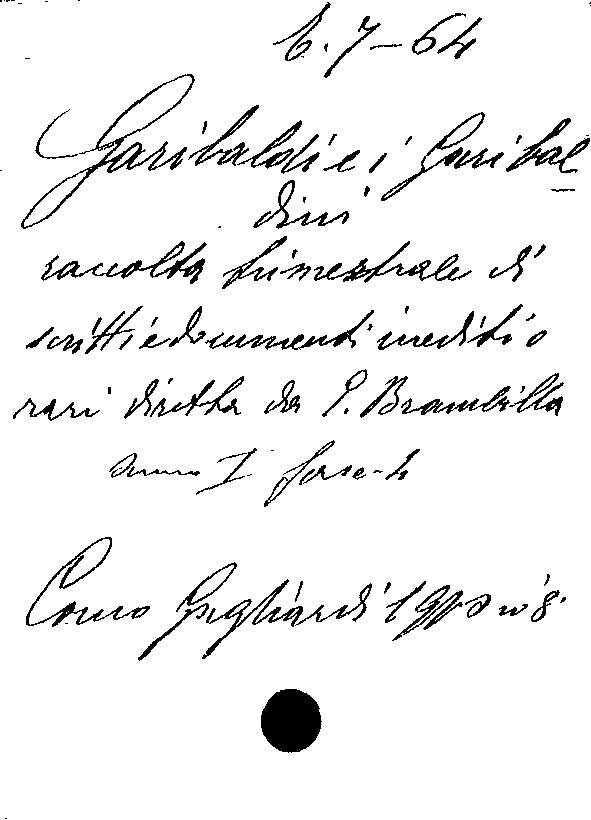 6.7-64
Garibaldi e i Garibal
dini
raccolta trimestrale di
scritti e documenti inediti o
rari diretta da P. Brambilla
anno I fasc.
Como Gagliardi in 8.